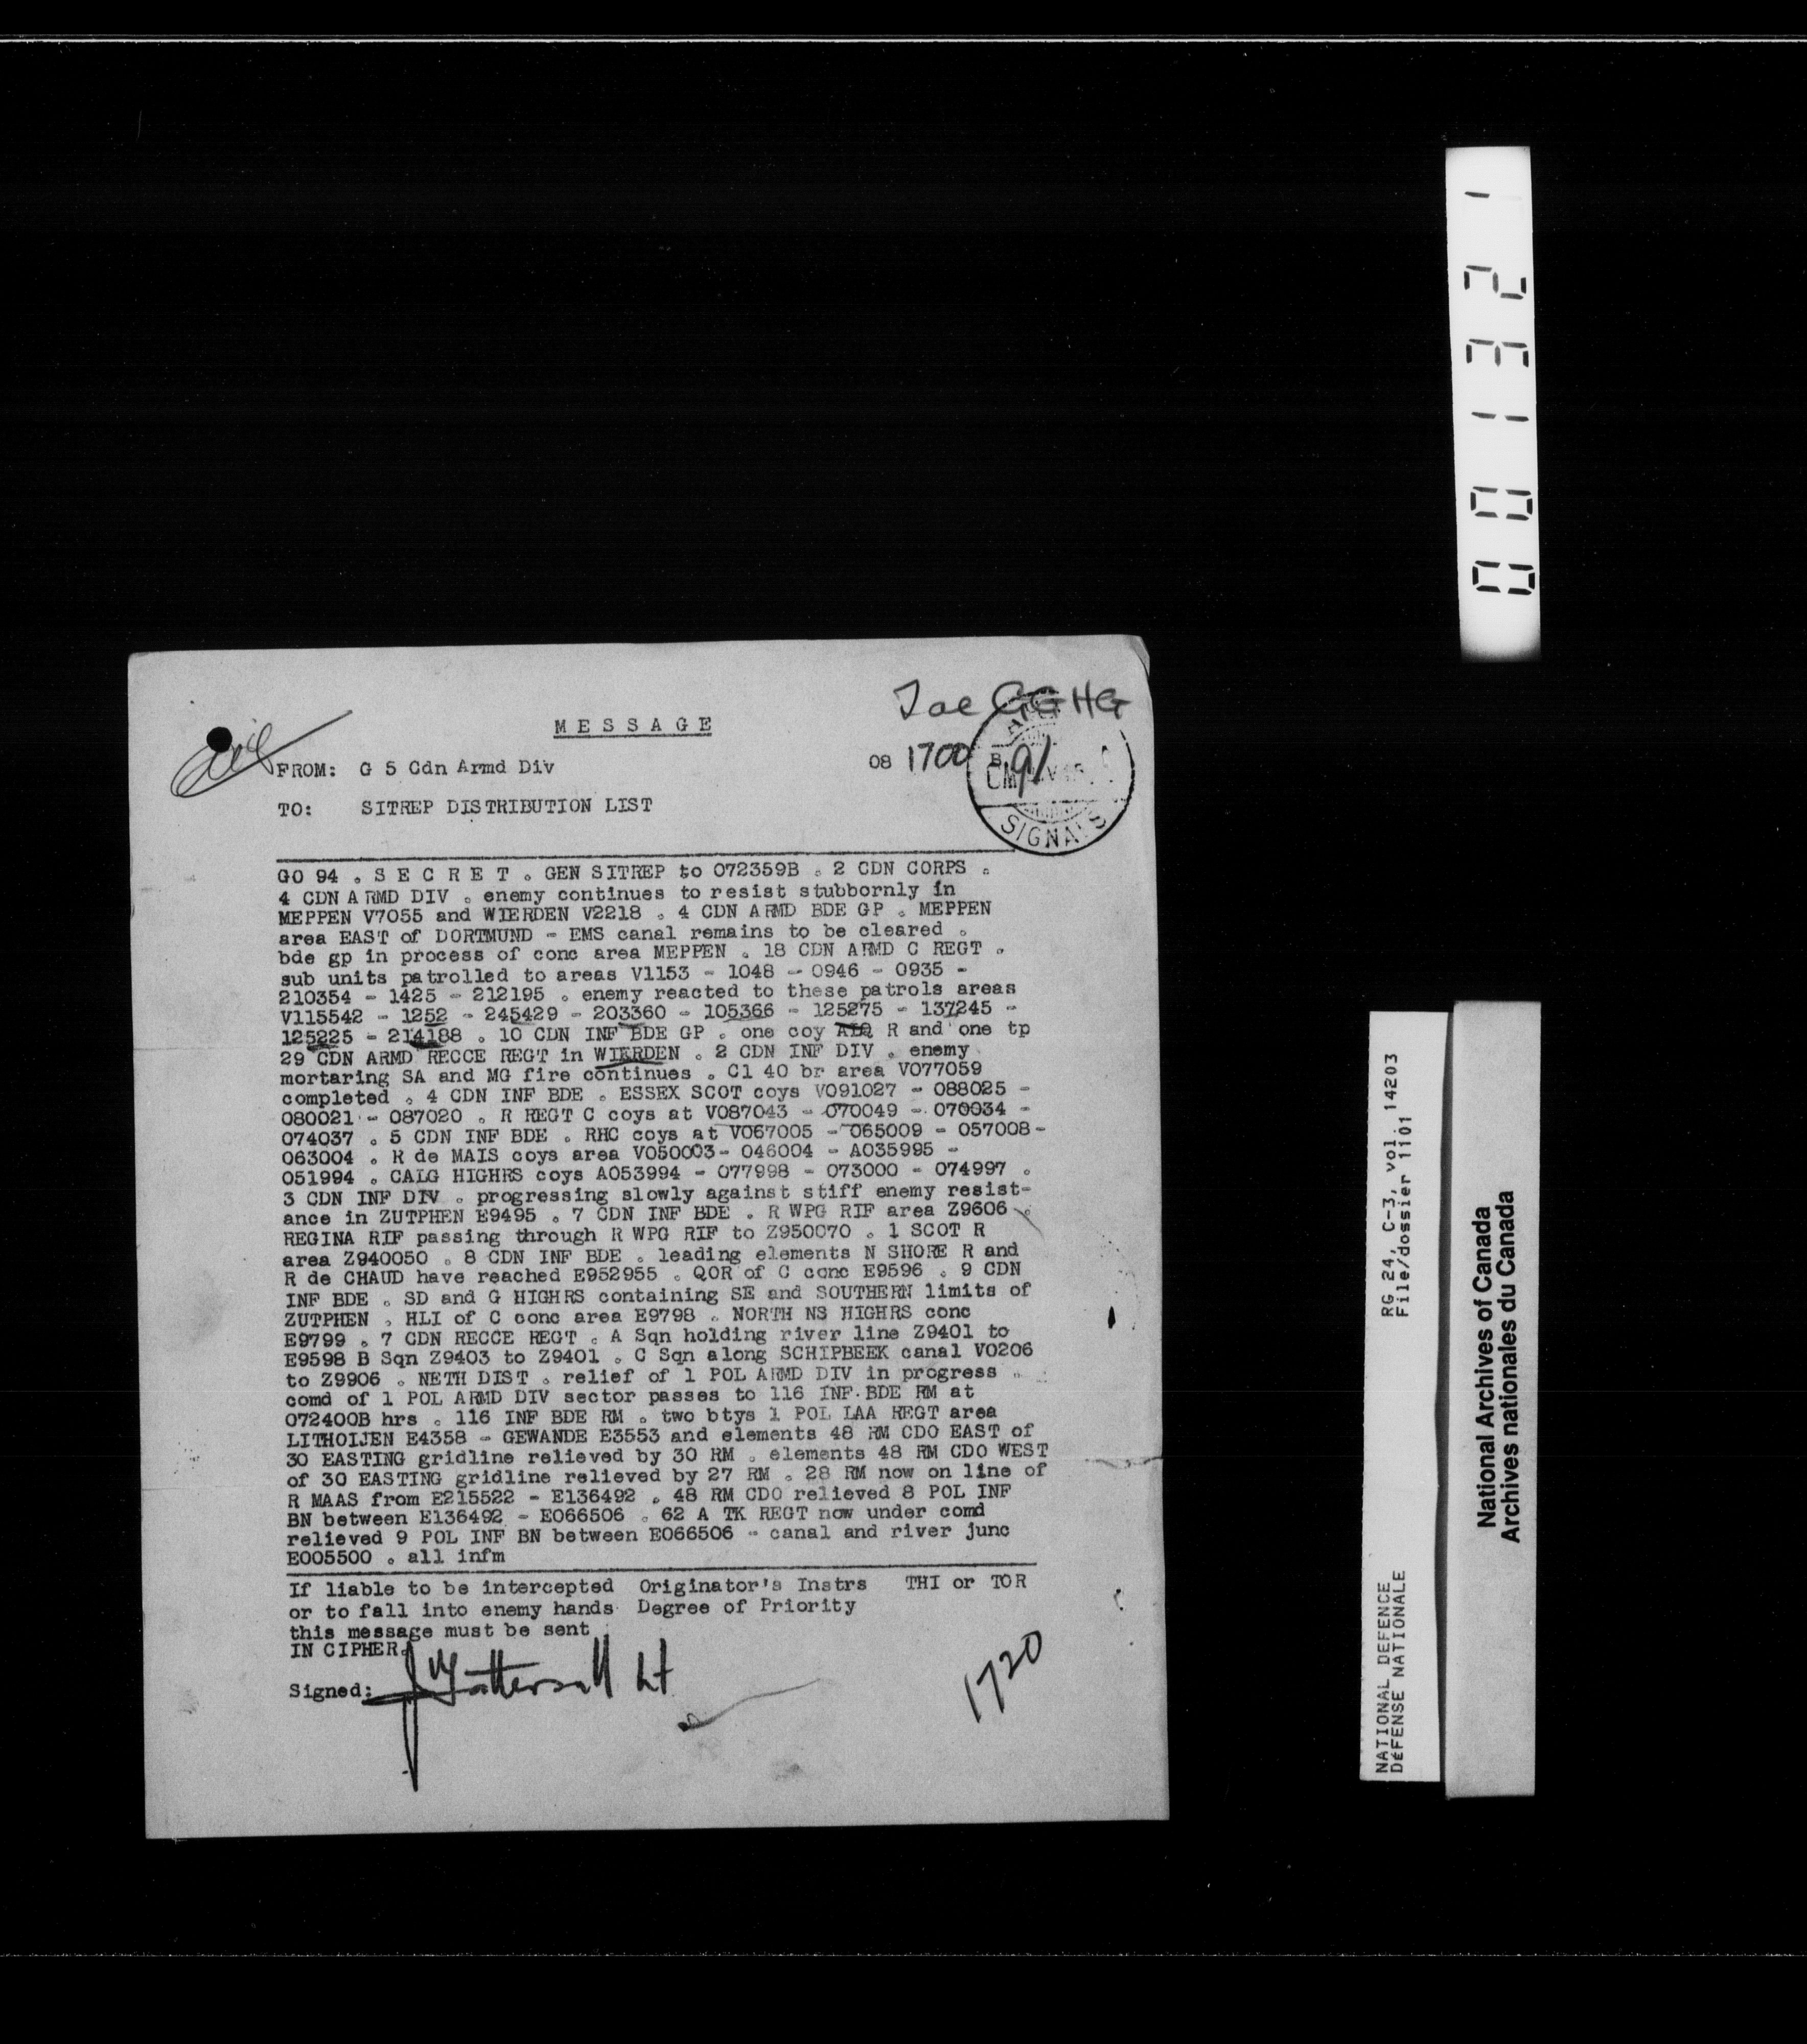 001321
Tac GGHG
MESSAGE
FROM: G 5 Cdn Armd Div
08 1700 B
91
SIGNALS
TO: SITREP DISTRIBUTION LIST
GO 94 . S E C R E T . GEN SITREP to 072359B . 2 CDN CORPS .
4 CDN ARMD DIV . enemy continues to resist stubbornly in
MEPPEN V7055 and WIERDEN V2218 . 4 CDN ARMD BDE GP . MEPPEN
area EAST of DORTMUND - EMS canal remains to be cleared .
bde gp in process of conc area MEPPEN . 18 CDN ARMD C REGT .
sub units patrolled to areas V1153 - 1048 - 0946 - 0935 -
210354 - 1425 - 212195 . enemy reacted to these patrols areas
V115542 - 1252 - 245429 - 203360 - 105366 - 125275 - 137245 -
125225 - 214188 . 10 CDN INF BDE GP . one coy ALQ R and one tp
29 CDN ARMD RECCE REGT in WIERDEN . 2 CDN INF DIV . enemy
mortaring SA and MG fire continues . Cl 40 br area V077059
completed . 4 CDN INF BDE . ESSEX SCOT coys V091027 - 088025 -
080021 - 087020 . R REGT C coys at V087043 - 070049 - 070034 -
074037 . 5 CDN INF BDE . RHC coys at V067005 - 065009 - 057008-
063004 . R de MAIS coys area V050003- 046004 - A035995 -
051994 . CALG HIGHRS coys A053994 - 077998 - 073000 - 074997 .
3 CDN INF DIV . progressing slowly against stiff enemy resist-
ance in ZUTPHEN E9495 . 7 CDN INF BDE . R WPG RIF area Z9606 .
REGINA RIF passing through R WPG RIF to Z950070 . 1 SCOT R
area Z940050 . 8 CDN INF BDE . leading elements N SHORE R and
R de CHAUD have reached E952955 . QOR of C conc E9596 . 9 CDN
INF BDE . SD and G HIGHRS containing SE and SOUTHERN limits of
ZUTPHEN . HLI of C conc area E9798 . NORTH NS HIGHRS conc
E9799 . 7 CDN RECCE REGT . A Sqn holding river line Z9401 to
E9598 B Sqn Z9403 to Z9401 . C Sqn along SCHIPBEEK canal V0206
to Z9906 . NETH DIST . relief of 1 POL ARMD DIV in progress .
comd of 1 POL ARMD DIV sector passes to 116 INF BDE RM at
072400B hrs . 116 INF BDE RM . two btys 1 POL LAA REGT area
LITHOIJEN E4358 - GEWANDE E3553 and elements 48 RM CDO EAST of
30 EASTING gridline relieved by 30 RM . elements 48 RM CDO WEST
of 30 EASTING gridline relieved by 27 RM . 28 RM now on line of
R MAAS from E215522 - E136492 . 48 RM CDO relieved 8 POL INF
BN between E136492 - E066506 . 62 A TK REGT now under comd
relieved 9 POL INF BN between E066506 - canal and river junc
E005500 . all infm
If liable to be intercepted Originator's Instrs THI or TOR
or to fall into enemy hands Degree of Priority
this message must be sent
IN CIPHER.
Signed: J Tattersall Lt
1720
RG 24, C-3, vol. 14203
File/dossier 1101
NATIONAL DEFENCE
DÉFENSE NATIONALE
National Archives of Canada
Archives nationales du Canada